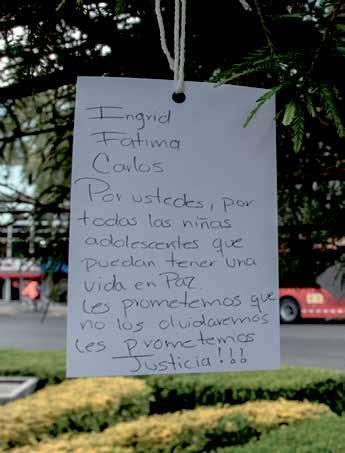 Ingrid
Fatima
Carlos
Por ustedes, por
todas las niñas
adolescentes que
puedan tener una
vida en Paz.
Les prometemos que
no los olvidaremos
Les prometemos
Justicia!!!